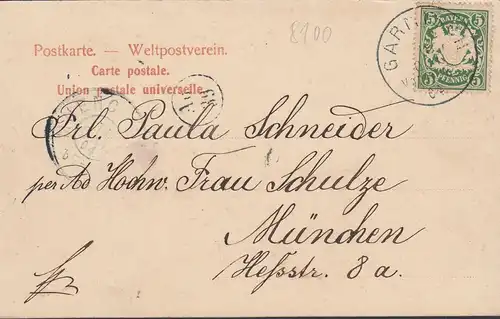 8100
Postkarte. — Weltpostverein.
Carte postale.
Union postale universelle.
BAYERN
5 5
5 PFENNIG 5
GAR
Frl. Paula Schneider
per Ad Hochw. Frau Schulze
München
Hessstr. 8 a.